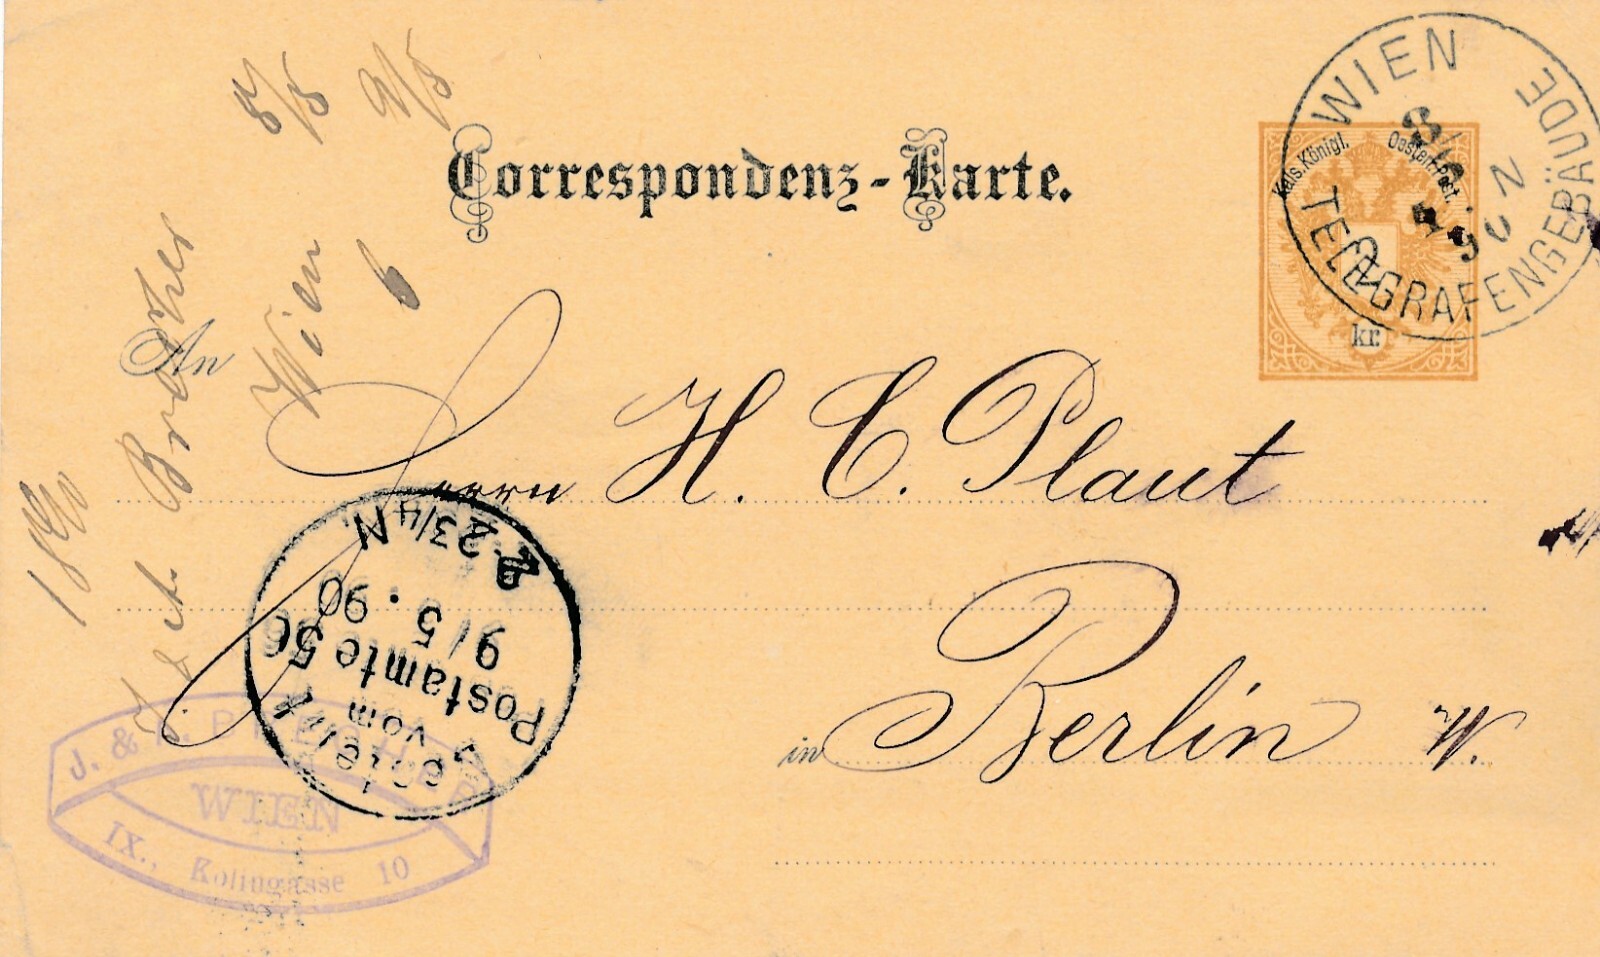 Correspondenz-Karte.
Kais.Königl. Oesterr.Post.
2
kr.
WIEN
TELEGRAFENGEBÄUDE
8/5
90
N
8/5
9/5
Wien
6
1890
An
Herrn H. C. Plaut
in Berlin W.
Bestellt
vom
Postamte
9/5.90
2¾N.
J. &
WIEN
IX., Kolingasse 10